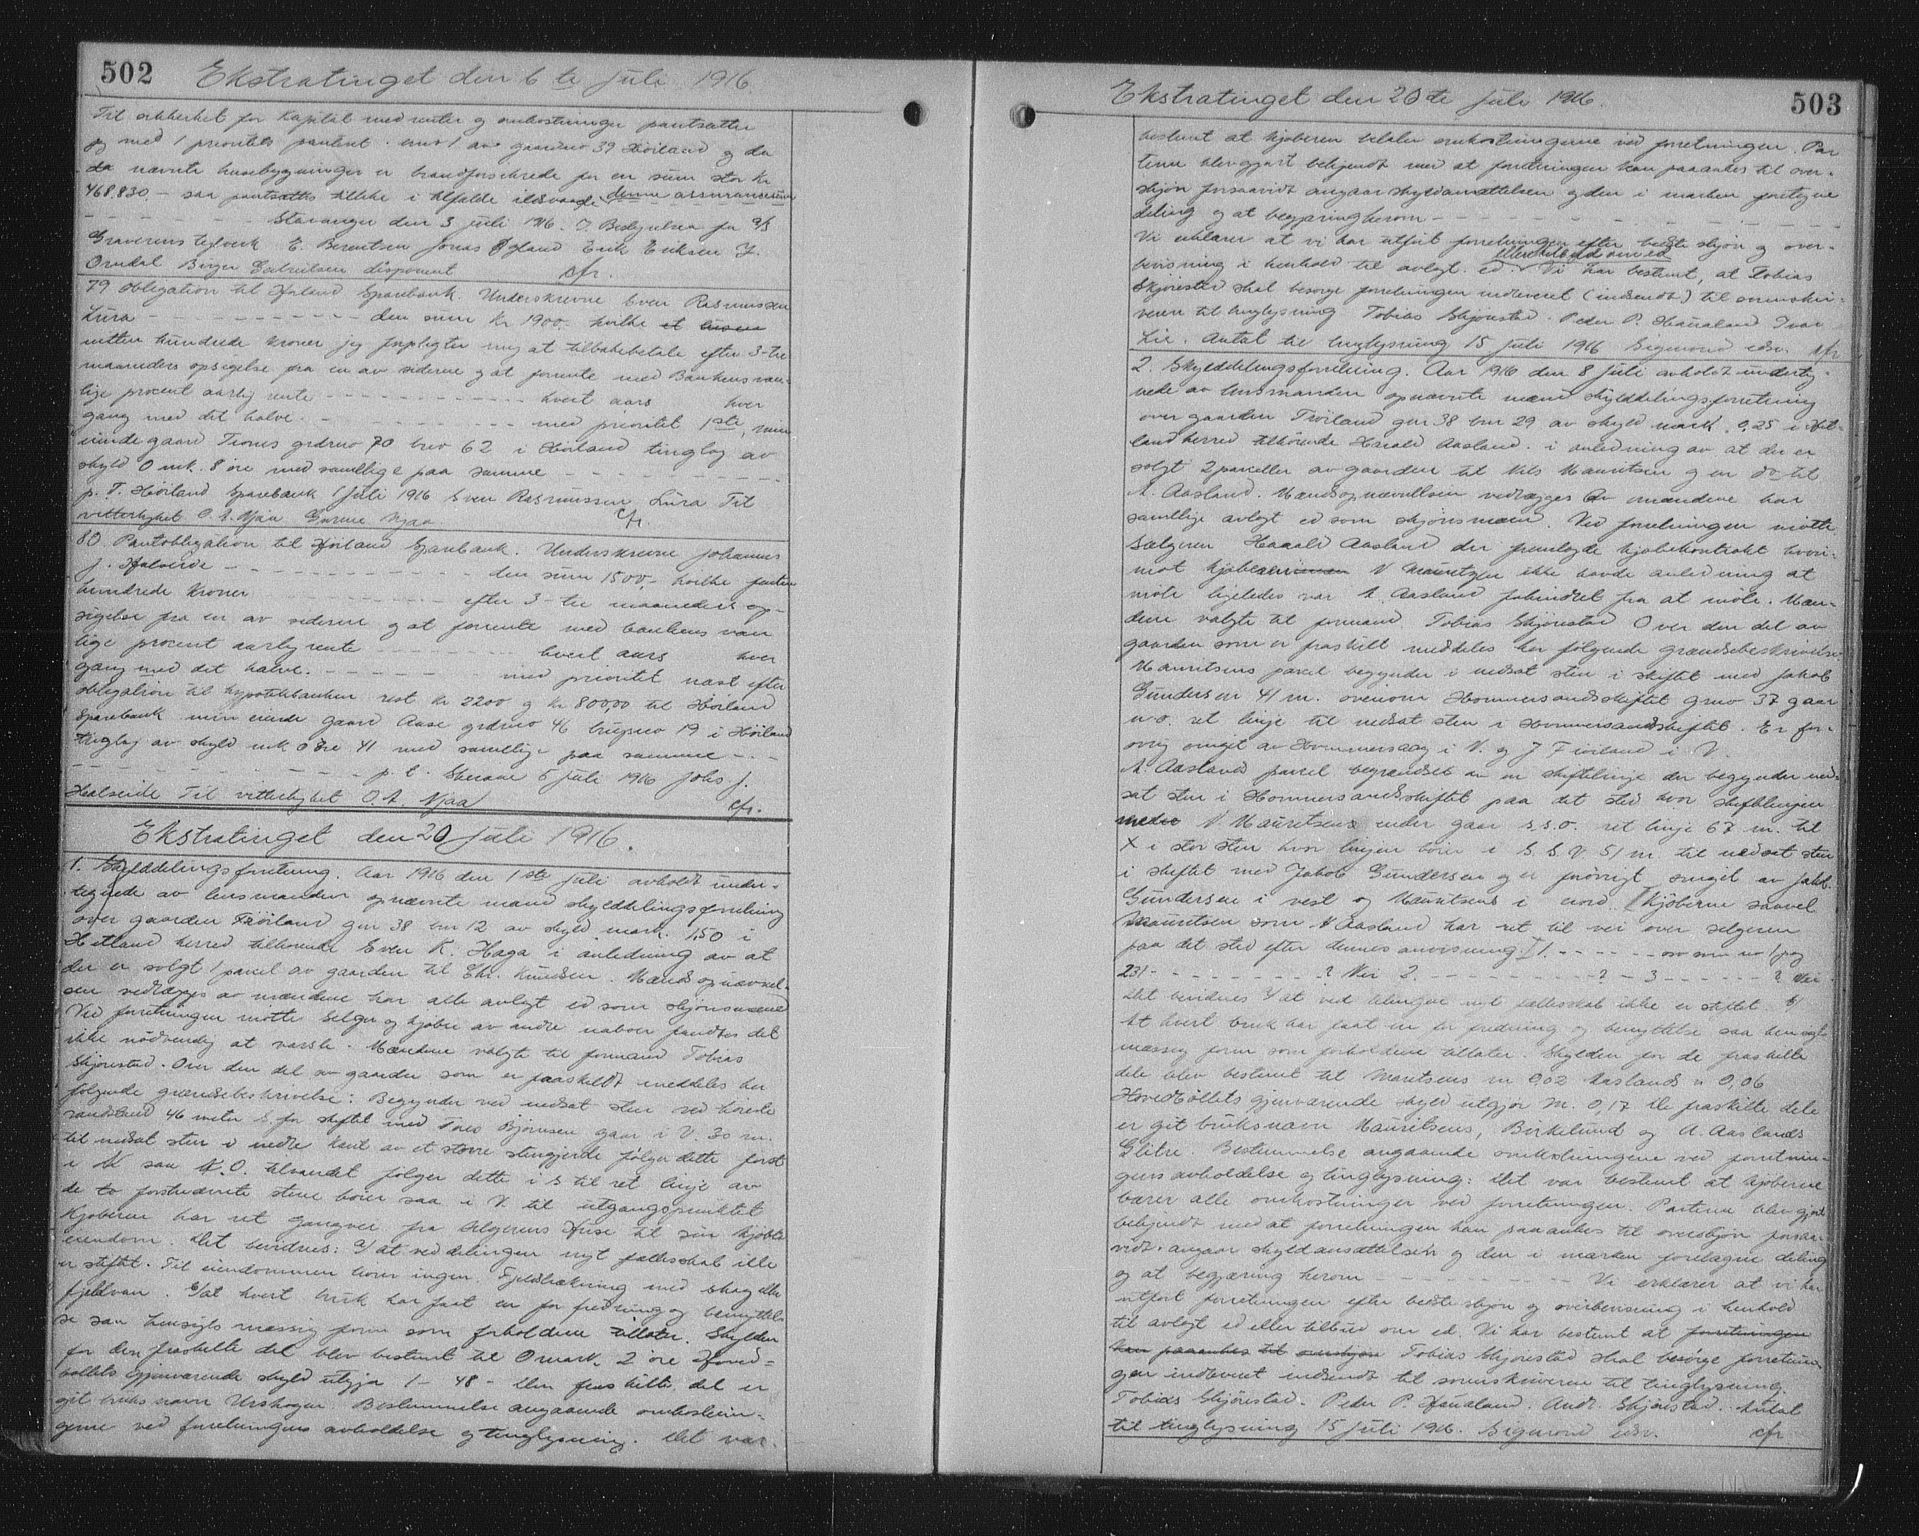 502 Ekstratinget den 6te Juli 1916.
Til sikkerhet for Kapital med renter og omkostninger pantsætter
jeg med 1 prioritets panteret bno 1 av gaardno 39 Høiland og da
da nævnte husebygninger er brandforsikrede for en sum stor Kr
468.830 – saa pantsættes tillike i tilfælde ildsvaade denne assurancesum
Stavanger den 3 juli 1916. I Bestyrelsen for A/S
Graverens teglverk E. Berentsen Jonas Øgland Erik Eriksen
Omdal Birger Gabrielsen disponent cfr.
79 Obligation til Høiland Sparebank. Underskrevne Sven Rasmussen
Lura – – – den sum Kr 1900.- hvilke et tusen
nitten hundrede Kroner jeg forpligter mig at tilbakebetale efter 3-tre
maaneders opsigelse fra en av siderne og at forrente med Bankens van-
lige procent aarlig rente – – – hvert aars hver
gang med det halve. – – – med prioritet 1ste, min
eiende gaard Trones grdno 70 brno 62 i Høiland tinglag av
skyld 0 mk. 8 øre med samtlige paa samme – – –
p. T. Høiland Sparebank 1 Juli 1916 Sven Rasmussen Lura Til
vitterlighet O. A. Njaa Gurine Njaa cfr.
80 Pantobligation til Høiland Sparebank. Underskrevne Johannes
J. Halseide – – – den sum 1500,- hvilke femten
hundrede Kroner – – – efter 3-tre maaneders op-
sigelse fra en av siderne og at forrente med bankens van
lige procent aarlig rente – – – hvert aars hver
gang med det halve. – – – med prioritet næst efter
obligation til hypotekbanken rest kr 2200 og kr 800,00 til Høiland
Sparebank min eiende gaard Aase grdno 46 bruksno 19 i Høiland
tinglag av skyld mk 0 øre 41 med samtlige paa samme – – –
– – – p. t. Skeiane 5 Juli 1916 Johs. J.
Halseide Til vitterlighet O. A. Njaa cfr.
Ekstratinget den 20 Juli 1916.
1. Skylddelingsforretning. Aar 1916 den 1ste Juli avholdt under-
tegnede av lensmanden opnævnte mænd skylddelingsforretning
over gaarden Frøiland gnr 38 bnr 12 av skyld mark 1,50 i
Hetland herred tilhørende Sven K. Haga i anledning av at
der er solgt 1 parcel av gaarden til Chr. Knudsen. Mandsopnævnel-
sen vedlægges av mændene har alle avlagt ed som skjønsmænd
Ved forretningen møtte selger og kjøber av andre naboer fandtes det
ikke nødvendig at varsle. Mændene valgte til formand Tobias
Skjørestad. Over den del av gaarden som er fraskildt meddeles her
følgende grændsebeskrivelse: Begynder ved nedsat sten ved
46 meter S. for skiftet med Tores Bjørnsen gaar i V. 30 m.
til nedsat sten i nedre kant av et større stengjerde følger dette først
i N saa N.O. følger dette i S til ret linje av
de to forstnævnte stene bøier saa i V. til utgangspunktet
Kjøberen har ret gangvei fra selgerens Huse til sin kjøbte
eiendom. Det bevidnes: a/ at ved delingen nyt fællesskab ikke
er stiftet. Til eiendommen hører ingen Fjeldstrækning med skog eller
fjeldvan. b/ at hvert bruk har faat en for fredning og benyttel-
se saa hensigtsmæssig form som forholdene tillater. Skylden
for den fraskilte del blev bestemt til 0 mark 2 øre Hoved-
bøllets gjenværende skyld utgjør 1 – 48 – Den fraskilte del er
git bruksnavn Urskogen. Bestemmelse angaaende omkostnin-
gerne ved forretningens avholdelse og tinglysning. Det var
Ekstratinget den 20de Juli 1916 503
bestemt at kjøberen betaler omkostningerne ved forretningen. Par
terne blev gjort bekjendt med at forretningen kan paaankes til over-
skjøn forsaavidt angaar skyldansættelsen og den i marken foretagne
deling og at begjæring herom – – –
Vi erklærer at vi har utført forretningen efter bedste skjøn og over-
eller tilbud om ed
bevisning i henhold til avlagt ed Vi har bestemt, at Tobias
Skjørestad skal besørge forretningen indleveret (indsendt) til sorenskri-
veren til tinglysning Tobias Skjørestad. Peder P. Haualand Ivar
Lie. Antat til tinglysning 15 Juli 1916 Sigmond edsv. cfr
2. Skylddelingsforretning. Aar 1916 den 8 Juli avholdt underteg-
nede av lensmanden opnævnte mænd skylddelingsforretning
over gaarden Frøiland gnr 38 bnr 29 av skyld mark 0,25 i Het-
land herred tilhørende Harald Aasland i anledning av at der er
solgt 2 parceller av gaarden til Nils Mauritsen og en do til
A. Aasland. Mandsopnævnelsen vedlægges Av mændene har
samtlige avlagt ed som skjønsmænd. Ved forretningen møtte
Sælgeren Harald Aasland der fremlagde kjøbekontrakt hvori-
mot kjøberen N Mauritzen ikke havde anledning at
møte ligeledes var A. Aasland forhindret fra at møte. Mæn-
dene valgte til formand Tobias Skjørestad Over den del av
gaarden som er fraskilt meddeles her følgende grændsebeskrivelse
Mauritsens parcel begynder i nedsat sten i skiftet med Jakob
Gundersen 41 m. ovenom Hommersandskiftet gnr 37 gaar
n.o. ret linje til nedsat sten i Hommersandskiftet. Er for-
øvrig omget av Hommersaag i N. og J Frøiland i V.
A. Aaslands parcel begrændset av en skiftelinje der begynder ned-
sat sten i Hommersandskiftet paa det sted hvor skiftelinjen
med N Mauritsens ender gaar s.s.o. ret linje 67 m. til
X i stor sten hvor linjen bøier i S.S.V. 51 m til nedsat sten
i skiftet med Jakob Gundersen og er forøvrigt omget av Jakob
Gundersen i vest og Mauritsens i nord. Kjøberne saavel
Mauritsen som A Aasland har ret til vei over selgeren
paa det sted efter dennes anvisning. 1. – – – som no 1 pag
231 – – – ? Nei 2. – – – ? – 3 – – – ? Nei
Det bevidnes a/ at ved delingen nyt fællesskab ikke er stiftet b/
At hvert bruk har faat en for fredning og benyttelse saa hensigts
mæssig form som forholdene tillater. Skylden for de fraskilte
dele blev bestemt til Mauritsens m 0,02 Aaslands m 0,06
Hovedbøllets gjenværende skyld utgjør M. 0,17 De fraskilte dele
er git bruksnavn Mauritsens, Birkelund og A. Aaslands
Glitre Bestemmelse angaaende omkostningene ved forretnin-
gens avholdelse og tinglysning: Det var bestemt at kjøberne
bærer alle omkostninger ved forretningen. Parterne blev gjort
bekjendt med at forretningen kan paaankes til overskjøn forsaa-
vidt angaar skyldansættelsen og den i marken foretagne deling
og at begjæring herom – – – Vi erklærer at vi har
utført forretningen efter bedste skjøn og overbevisning i henhold
til avlagt ed eller tilbud om ed. Vi har bestemt at forretningen
kan paaankes til overskjøn Tobias Skjørestad skal besørge forretnin-
gen indleveret indsendt til sorenskriveren til tinglysning.
Tobias Skjørestad. Peder P. Haualand. Andr. Skjørestad. Antat
til tinglysning 15 Juli 1916. Sigmond edsv. cfr